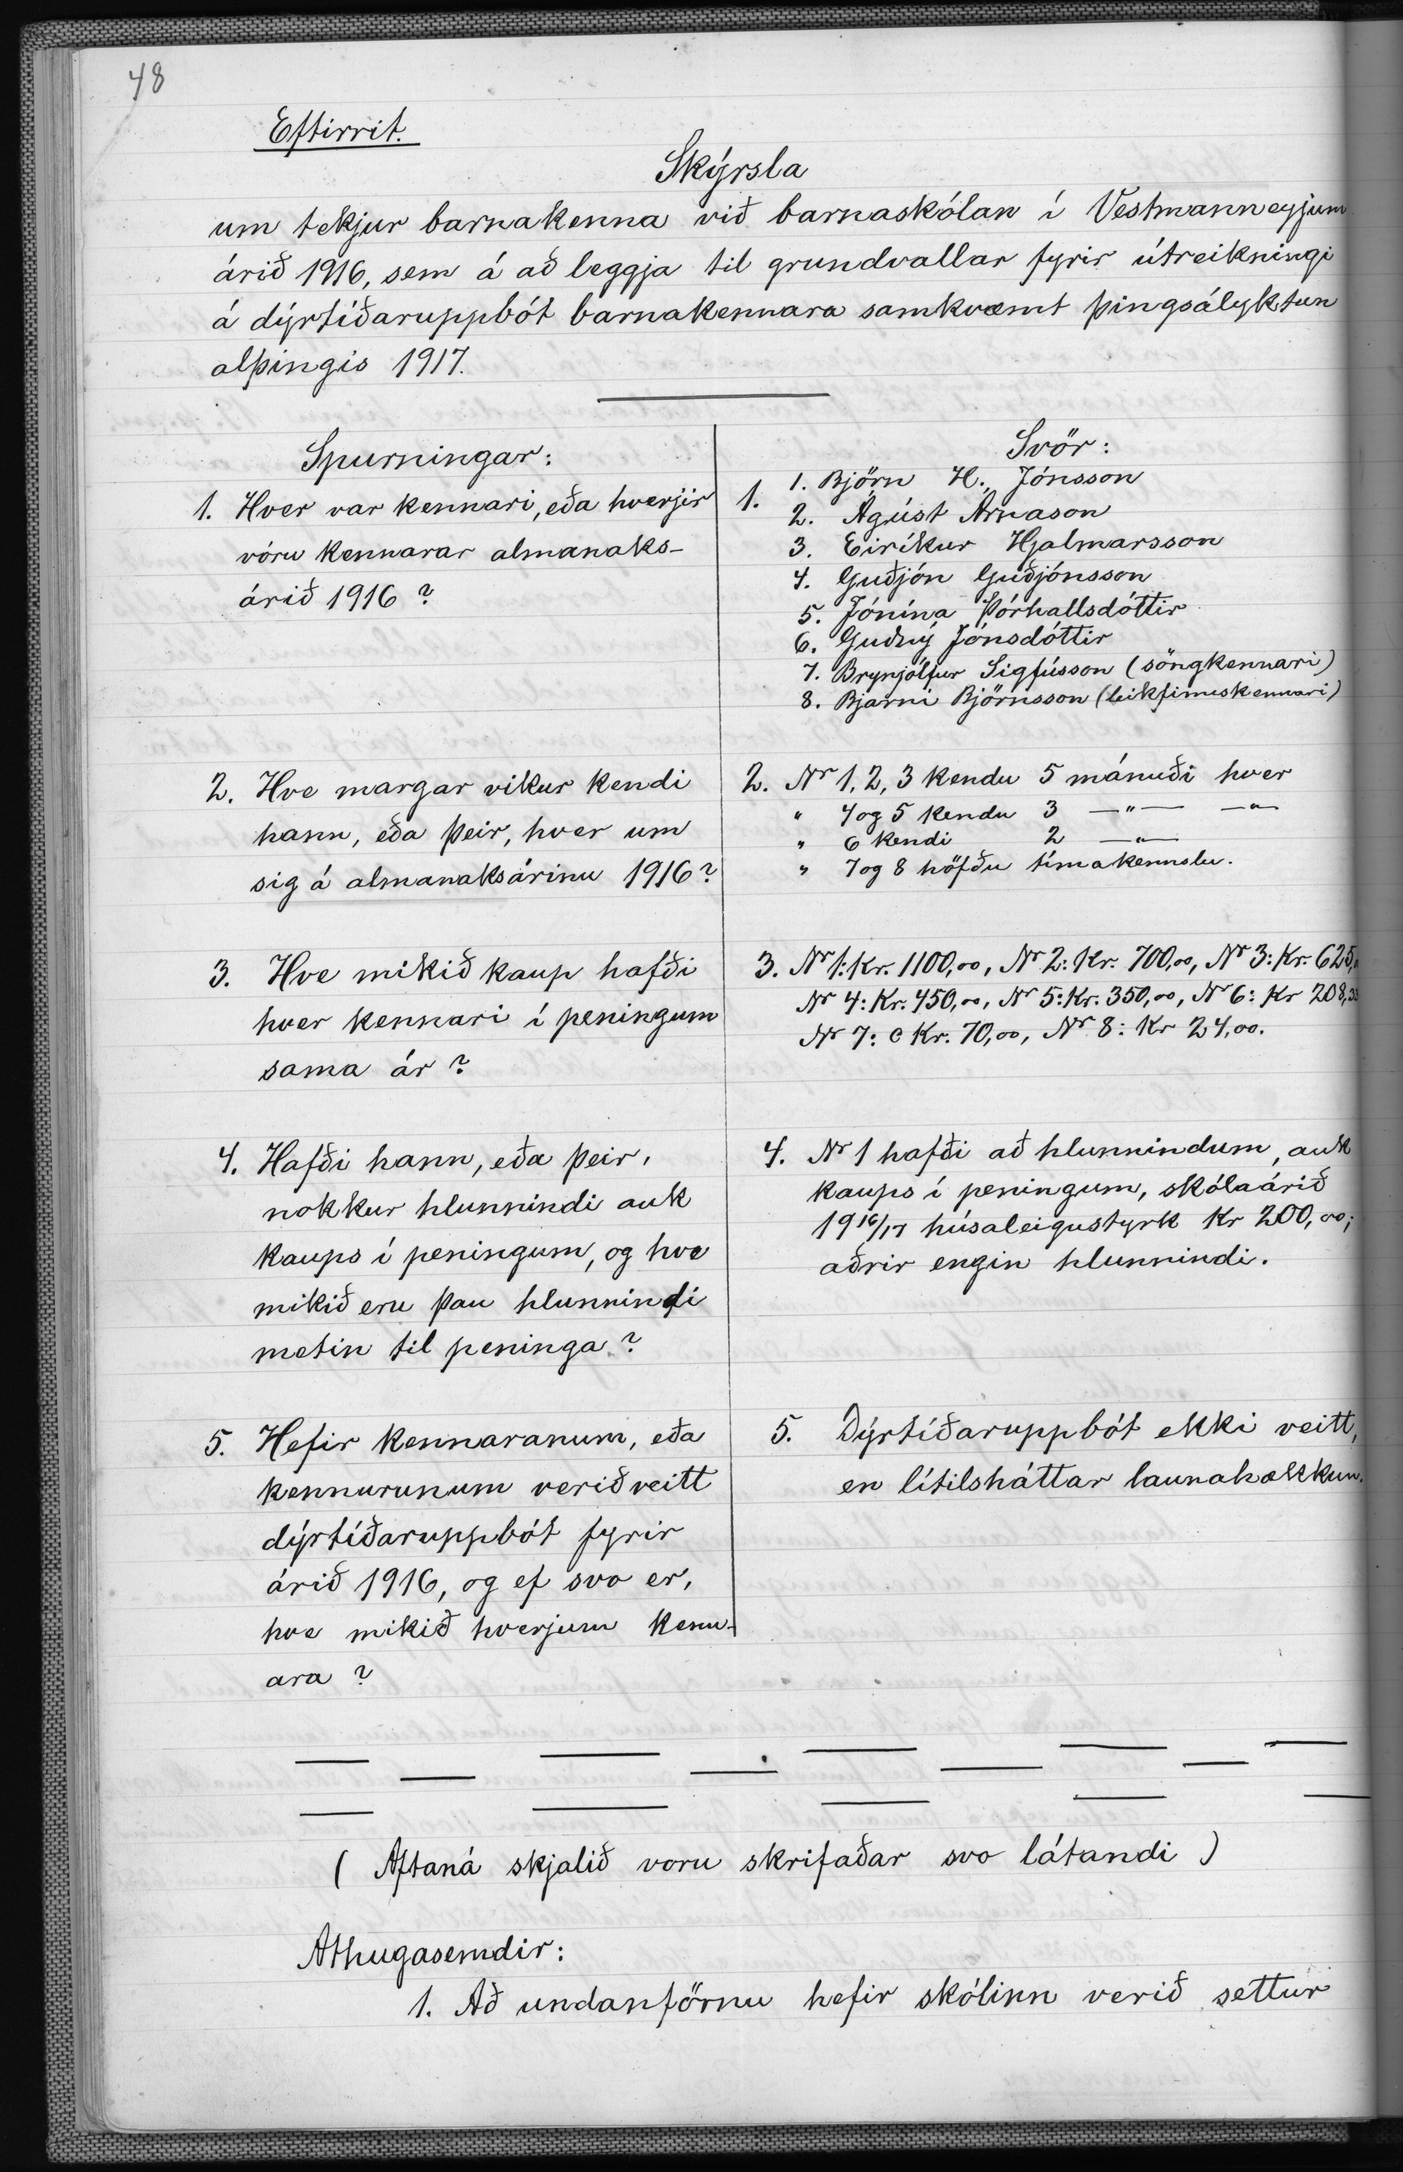 48
Eftirrit.
Skýrsla
um tekjur barnakenna við barnaskólan í Vestmannneyjum
árið 1916, sem á að leggja til grundvallar fyrir útreikningi
á dýrtíðaruppbót barnakennara samkvæmt þingsályktun
alþingis 1917.
Spurningar:
1. Hver var kennari, eða hverjir
vóru kennarar almanaks-
árið 1916?
2. Hve margar vikur kendi
hann, eða þeir, hver um
sig á almanaksárinu 1916?
3. Hve mikið kaup hafði
hver kennari í peningum
sama ár?
4. Hafði hann, eða þeir,
nokkur hlunnindi auk
kaups í peningum, og hve
mikið eru þau hlunnindi
metin til peninga?
5. Hefir kennaranum, eða
kennurunum verið veitt
dýrtíðaruppbót fyrir
árið 1916, og ef svo er,
hve mikið hverjum kenn-
ara?
Svör:
1. 1. Björn H. Jónsson
2. Ágúst Árnason
3. Eiríkur Hjalmarsson
4. Guðjón Guðjónsson
5. Jónína Þórhallsdóttir
6. Guðný Jónsdóttir
7. Brynjólfur Sigfússon (söngkennari)
8. Bjarni Björnsson (leikfimiskennari)
2. Nr 1, 2, 3 kendu 5 mánuði hver
" 4 og 5 kendu 3 —"— —"—
" 6 kendi 2 —"—
" 7 og 8 höfðu tímakennslu.
3. Nr 1: Kr. 1100,00, Nr 2: Kr. 700,00, Nr 3: Kr. 625,
Nr 4: Kr. 450,00, Nr 5: Kr. 350,00, Nr 6: Kr 208,33
Nr 7: c Kr. 70,00, Nr 8: Kr 24,00.
4. Nr 1 hafði að hlunnindum, auk
kaups í peningum, skólaárið
1916/17 húsaleigustyrk Kr 200,00;
aðrir engin hlunnindi.
5. Dýrtíðaruppbót ekki veitt,
en lítilsháttar launahækkun.
( Aftaná skjalið voru skrifaðar svo látandi )
Athugasemdir:
1. Að undanförnu hefir skólinn verið settur